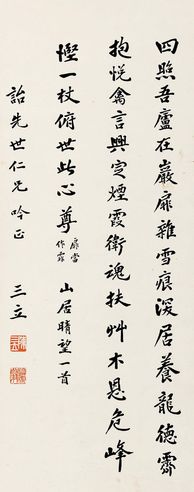 四照吾廬在巖扉雜雪痕深居養龍德霽
抱悅禽言興定煙霞衛魂扶艸木恩危峰
慳一杖俯世此心尊 扉當作霏 山居晴望一首
詒先世仁兄 吟正 三立